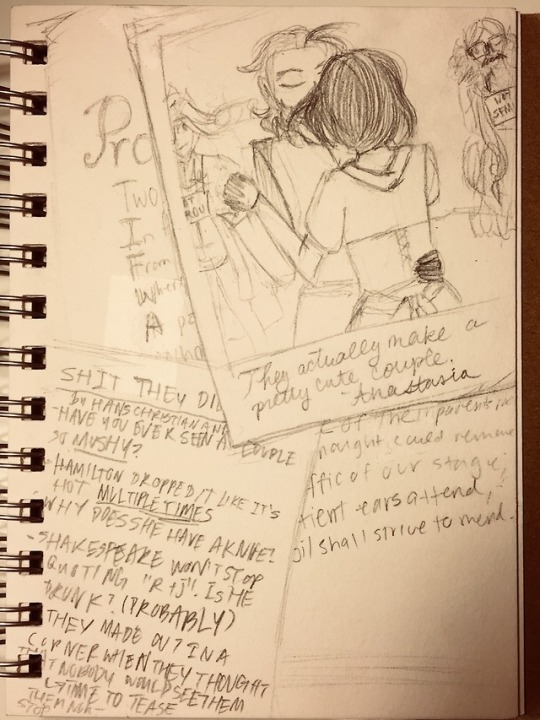 Pro
Two
In
From
Where
A
They actually make a
pretty cute couple.
-Anastasia
SHIT THEY DI
by HANS CHRISTIAN AN
-HAVE YOU EVER SEEN A COUPLE
SO MUSHY?
-HAMILTON DROPPED IT LIKE IT'S
HOT MULTIPLE TIMES
WHY DOES SHE HAVE A KNIFE?
-SHAKESPEARE WON'T STOP
QUOTING "R+J". IS HE
DRUNK? (PROBABLY)
THEY MADE OUT IN A
CORNER WHEN THEY THOUGHT
THAT NOBODY WOULD SEE THEM
TIME TO TEASE
THEM NOW-
STOP
of their parents'
naught could remove
ffic of our stage;
tient ears attend,
oil shall strive to mend.